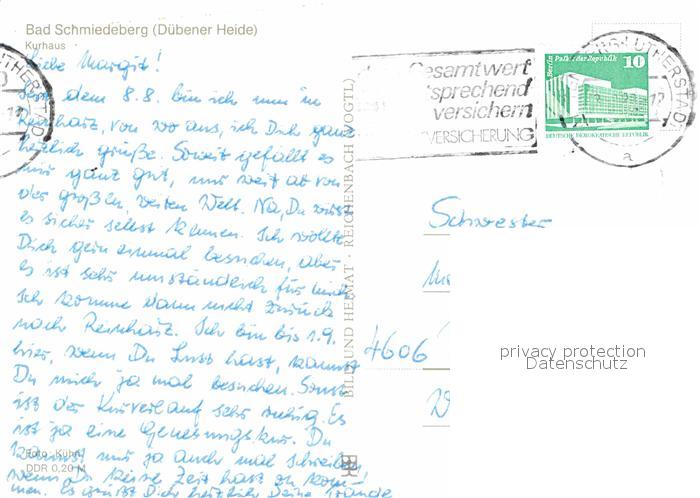 Bad Schmiedeberg (Dübener Heide)
Kurhaus
Liebe Margit!
Seit dem 8.8. bin ich nun in
Reinharz, von wo aus, ich Dich ganz
herzlich grüße. Soweit gefällt es
mir ganz gut, nur weit ab von
der großen, weiten Welt. Na, Du wirst
es sicher selbst kennen. Ich wollte
Dich gern einmal besuchen, aber
es ist sehr umständlich für mich
Ich komme dann nicht zurück
nach Reinharz. Ich bin bis 1.9.
hier, wenn Du Lust hast, kannst
Du mich ja mal besuchen. Sonst
ist der Kurverlauf sehr ruhig. Es
ist ja eine Genesungskur. Du
kannst mir ja auch mal schreiben,
wenn Du keine Zeit hast zu kom-
men. Es grüßt Dich herzlich Deine
Foto: Kühn
DDR 0,20 M
BILD UND HEIMAT · REICHENBACH (VOGTL)
Gesamtwert
sprechend
versichern
VERSICHERUNG
LUTHERSTADT
Berlin Palast der Republik 10
DEUTSCHE DEMOKRATISCHE REPUBLIK
a
Schwester
4606
privacy protection
Datenschutz